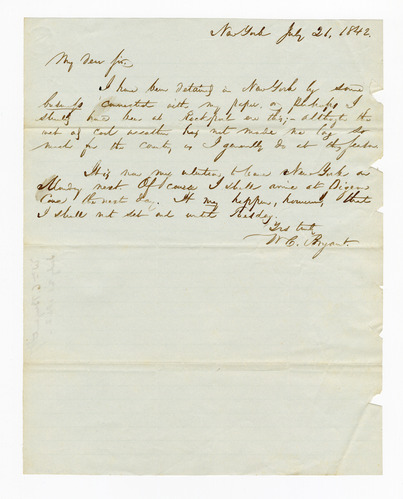 New York July 21, 1842.
My dear sir.
I have been detained in New York by some
business connected with my paper, or perhaps I
should have been at Rockport ere this; although the
wet and cool weather has not made me long so
much for the country as I generally do at this season
It is now my intention to leave New York on
Monday next. Of course I shall arrive at
Cove the next day. It may happen, however, that
I shall not set out until Tuesday.
Yrs truly
W. C. Bryant